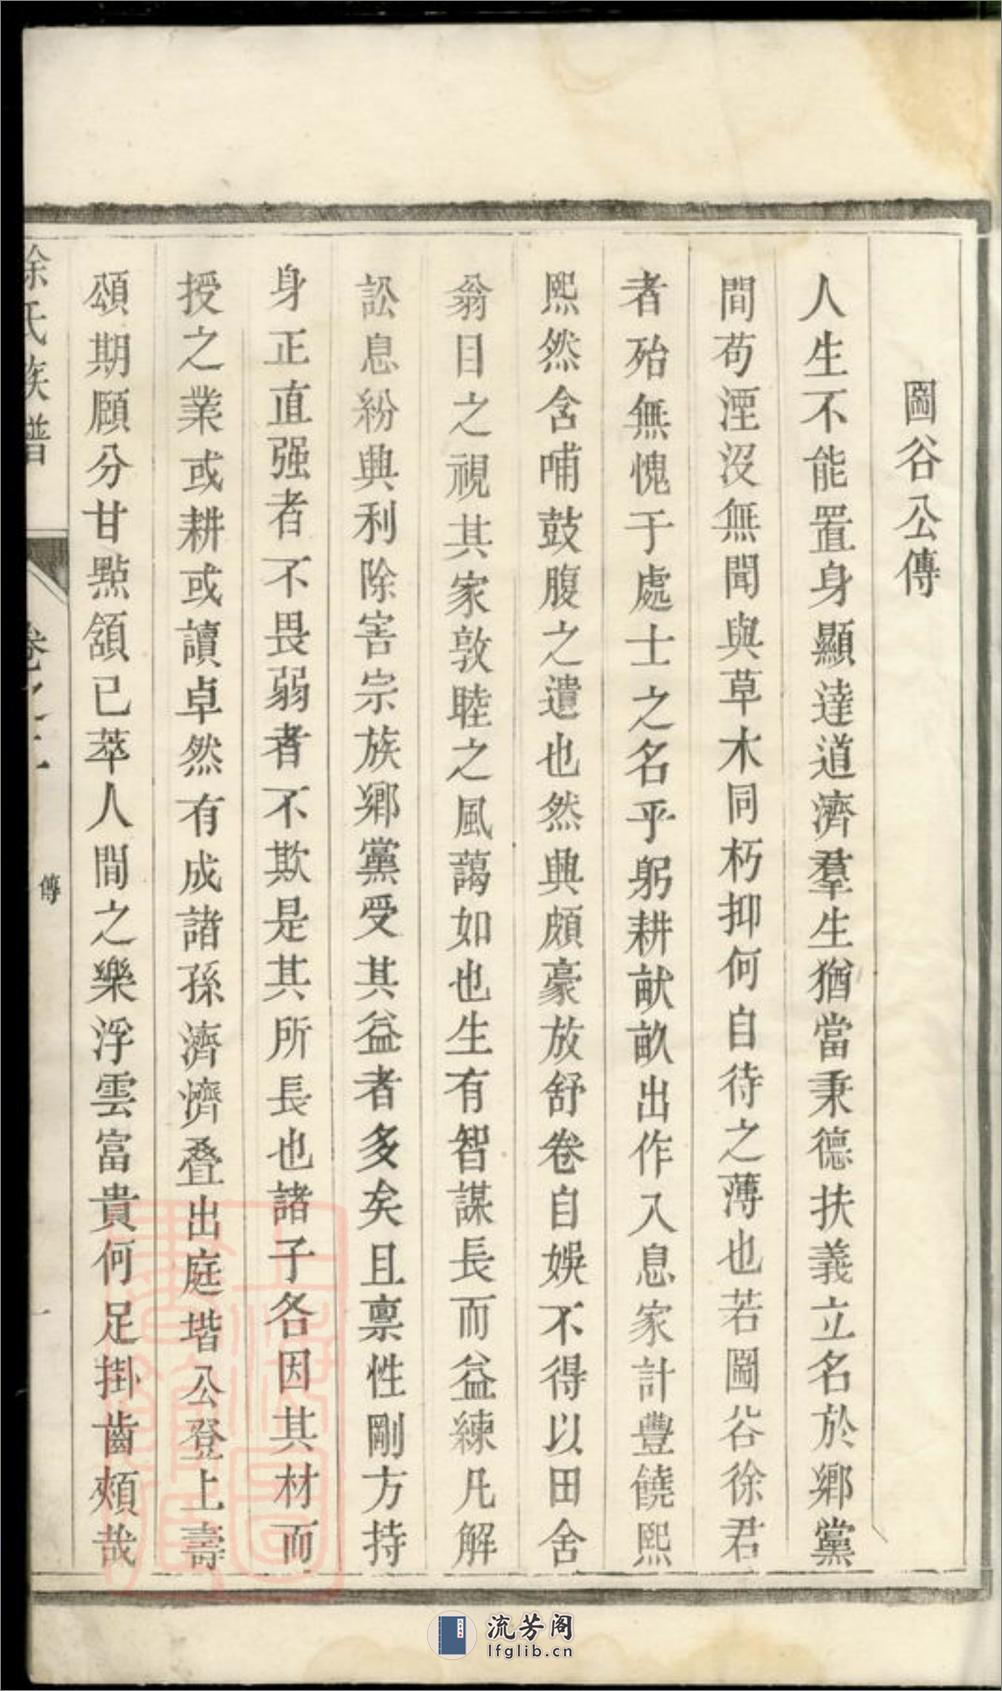 圖谷公傳
人生不能置身顯達道濟羣生猶當秉德扶義立名於鄉黨
間苟湮沒無聞與草木同朽抑何自待之薄也若圖谷徐君
者殆無愧于處士之名乎躬耕畎畝出作入息家計豐饒熙
熙然含哺鼓腹之遺也然興頗豪放舒卷自娛不得以田舍
翁目之視其家敦睦之風藹如也生有智謀長而益練凡解
訟息紛興利除害宗族鄉黨受其益者多矣且禀性剛方持
身正直强者不畏弱者不欺是其所長也諸子各因其材而
授之業或耕或讀卓然有成諸孫濟濟叠出庭堦公登上壽
頌期頤分甘點頷已萃人間之樂浮雲富貴何足掛齒頰哉
徐氏族譜
卷之
傳
一
流芳阁
lfglib.cn